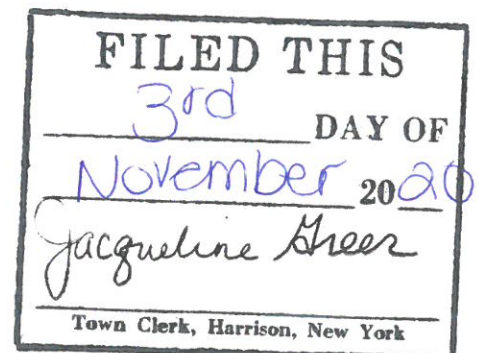 FILED THIS
3rd DAY OF
November 2020
Jacqueline Greer
Town Clerk, Harrison, New York